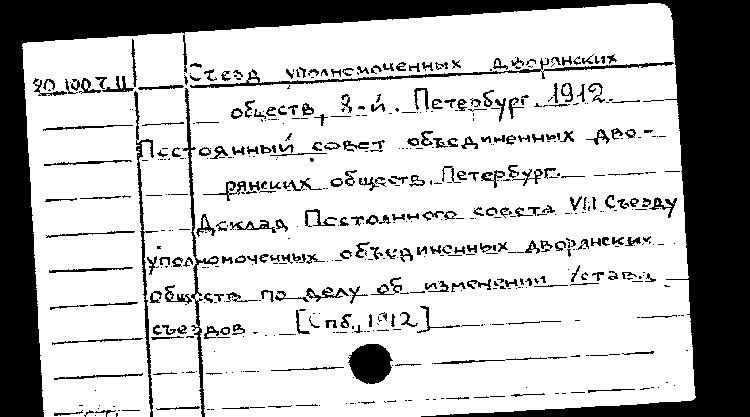 20.100.7.11
Съезд уполномоченных дворянских
обществ, 8-й. Петербург. 1912.
Постоянный совет объединенных дво-
рянских обществ. Петербург.
Доклад Постоянного совета VIII Съезду
уполномоченных объединенных дворянских
обществ по делу об изменении Устава
съездов. [Спб., 1912]